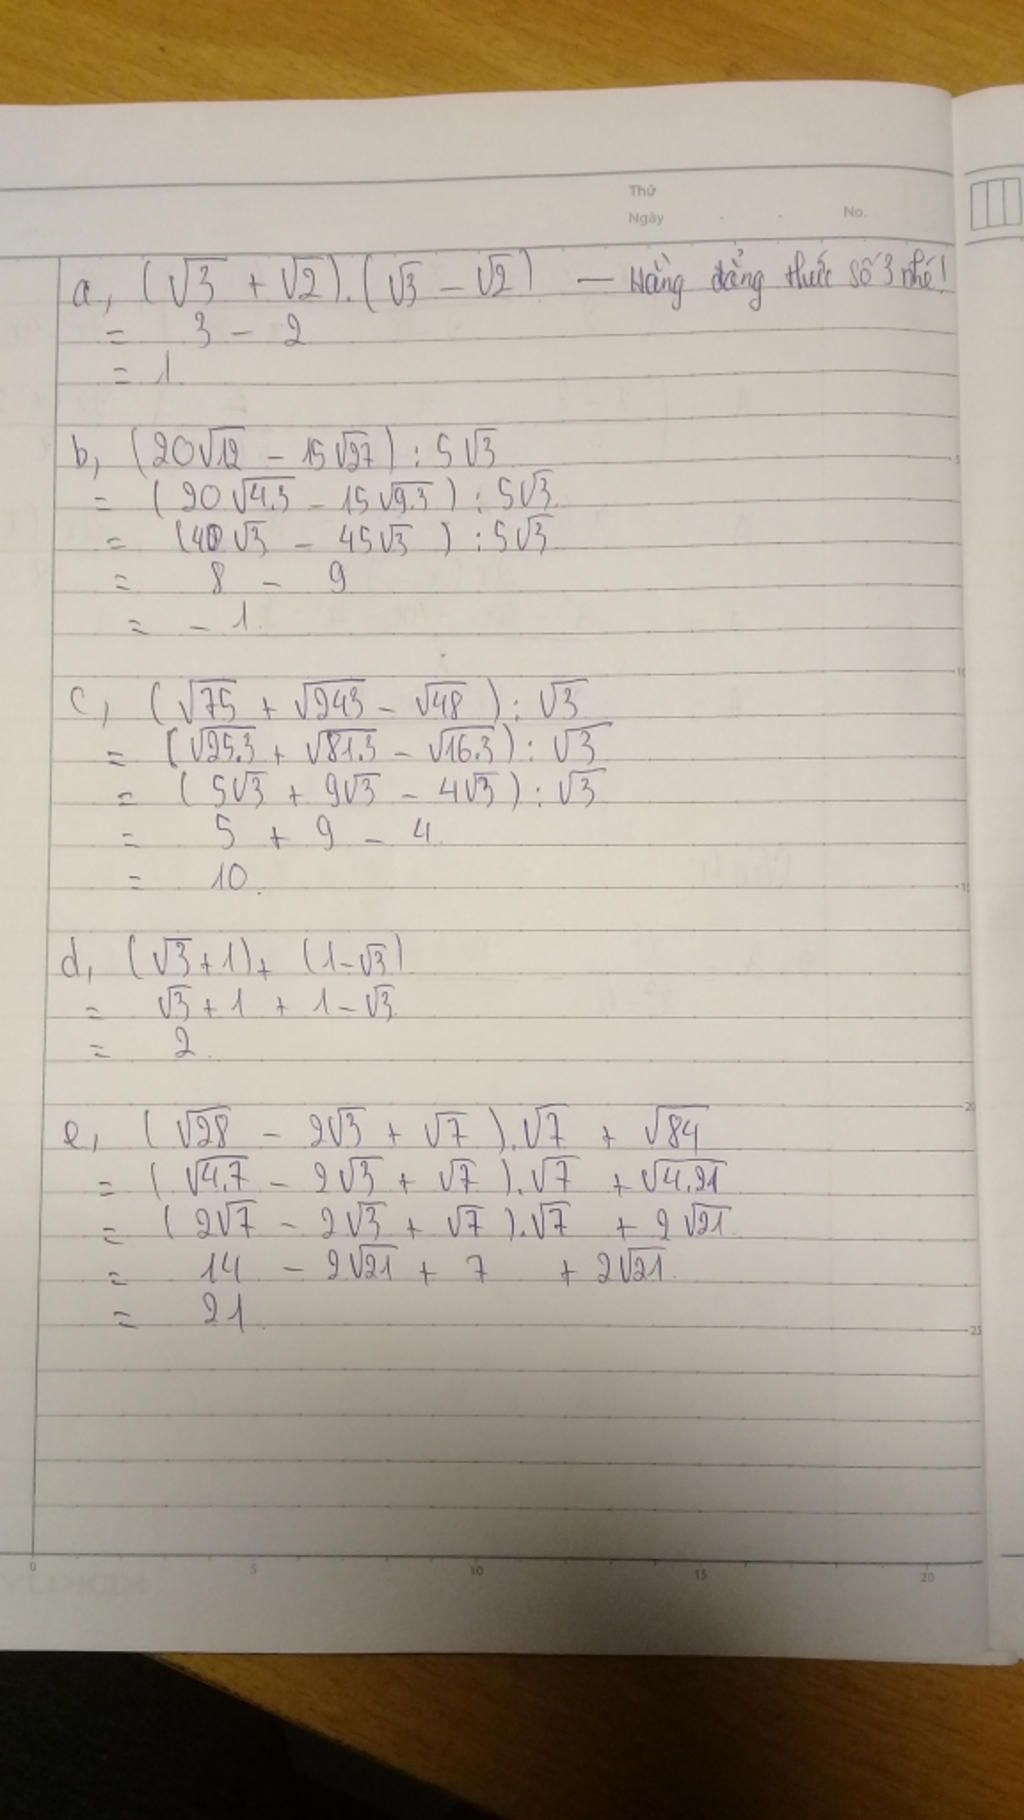 Thứ
Ngày . . No.
a, (√3 + √2).(√3 - √2) — Hằng đẳng thức số 3 nhé!
= 3 - 2
= 1.
b, (20√12 - 15√27) : 5√3
= (20√4.3 - 15√9.3) : 5√3
= (40√3 - 45√3) : 5√3
= 8 - 9
= -1.
c, (√75 + √243 - √48) : √3
= (√25.3 + √81.3 - √16.3) : √3
= (5√3 + 9√3 - 4√3) : √3
= 5 + 9 - 4
= 10.
d, (√3+1)+ (1-√3)
= √3 + 1 + 1 - √3
= 2.
e, (√28 - 2√3 + √7).√7 + √84
= (√4.7 - 2√3 + √7).√7 + √4.21
= (2√7 - 2√3 + √7).√7 + 2√21
= 14 - 2√21 + 7 + 2√21
= 21.
0 5 10 15 20